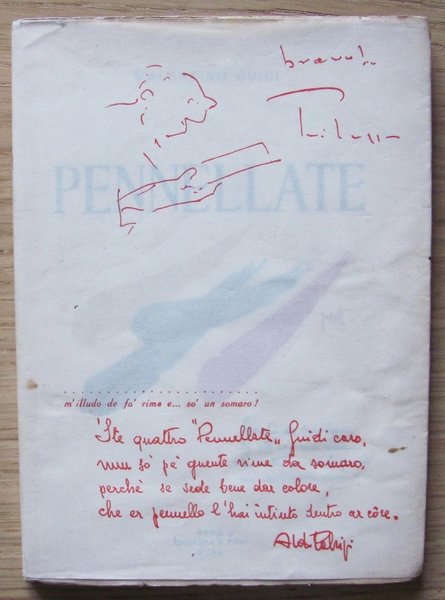 bravo!..
Trilussa
GUIDI
PENNELLATE
m'illudo de fa' rime e... so' un somaro!
'Ste quattro "Pennellate„ Guidi caro,
nun sò pè gnente rime da somaro,
perchè se vede bene dar colore,
che er pennello l'hai intinto dentro ar còre.
Aldo Fabrizi